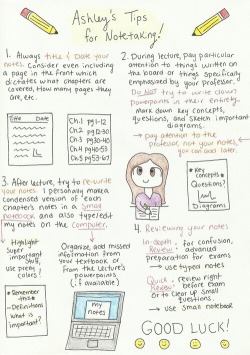 Ashley's Tips
for Notetaking!
1. Always title & Date your
notes. Consider even including
a page in the front which
dictates what chapters are
covered, How many pages they
are, etc.
Title Date
Ch.1 pg1-12
Ch.2 pg12-30
Ch.3 pg30-40
Ch.4 pg40-53
Ch.5 pg53-67
2. During lecture, pay particular
attention to things written on
the board or things specifically
emphasized by your professor.
Do NOT try to write down
powerpoints in their entirety.
Mark down key concepts,
questions, and sketch important
diagrams.
→ pay attention to the
professor, not your notes,
you can add later.
* Key
concepts *
Questions?
Diagrams
3. After lecture, try to re-write
your notes. I personally make a
condensed version of each
chapter's notes in a small
notebook and also type/edit
my notes on the computer.
Highlight
Super
important
stuff,
use pretty
colors!
Organize, add missed
information from
your textbook or
from the lecture's
powerpoint
(if available)
* Remember
this *
- Definitions
what is
important?
my
notes
4. Reviewing your notes
In-depth
Review: for confusion,
advanced
preparation for exams
→ use typed notes
Quick
Review: review right
before exam
or to clear up small
questions.
→ use small notebook
GOOD LUCK!